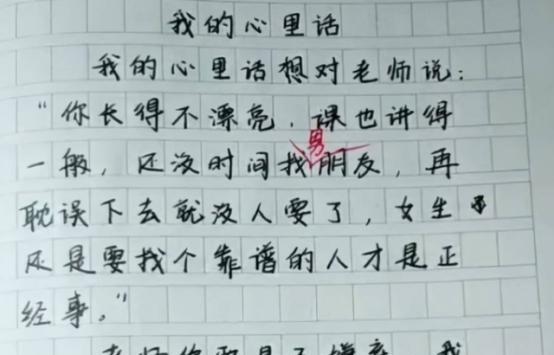 我的心里话
我的心里话想对老师说：
“你长得不漂亮，课也讲得
一般，还没时间找男朋友，再
耽误下去就没人要了，女生
还是要找个靠谱的人才是正
经事。”